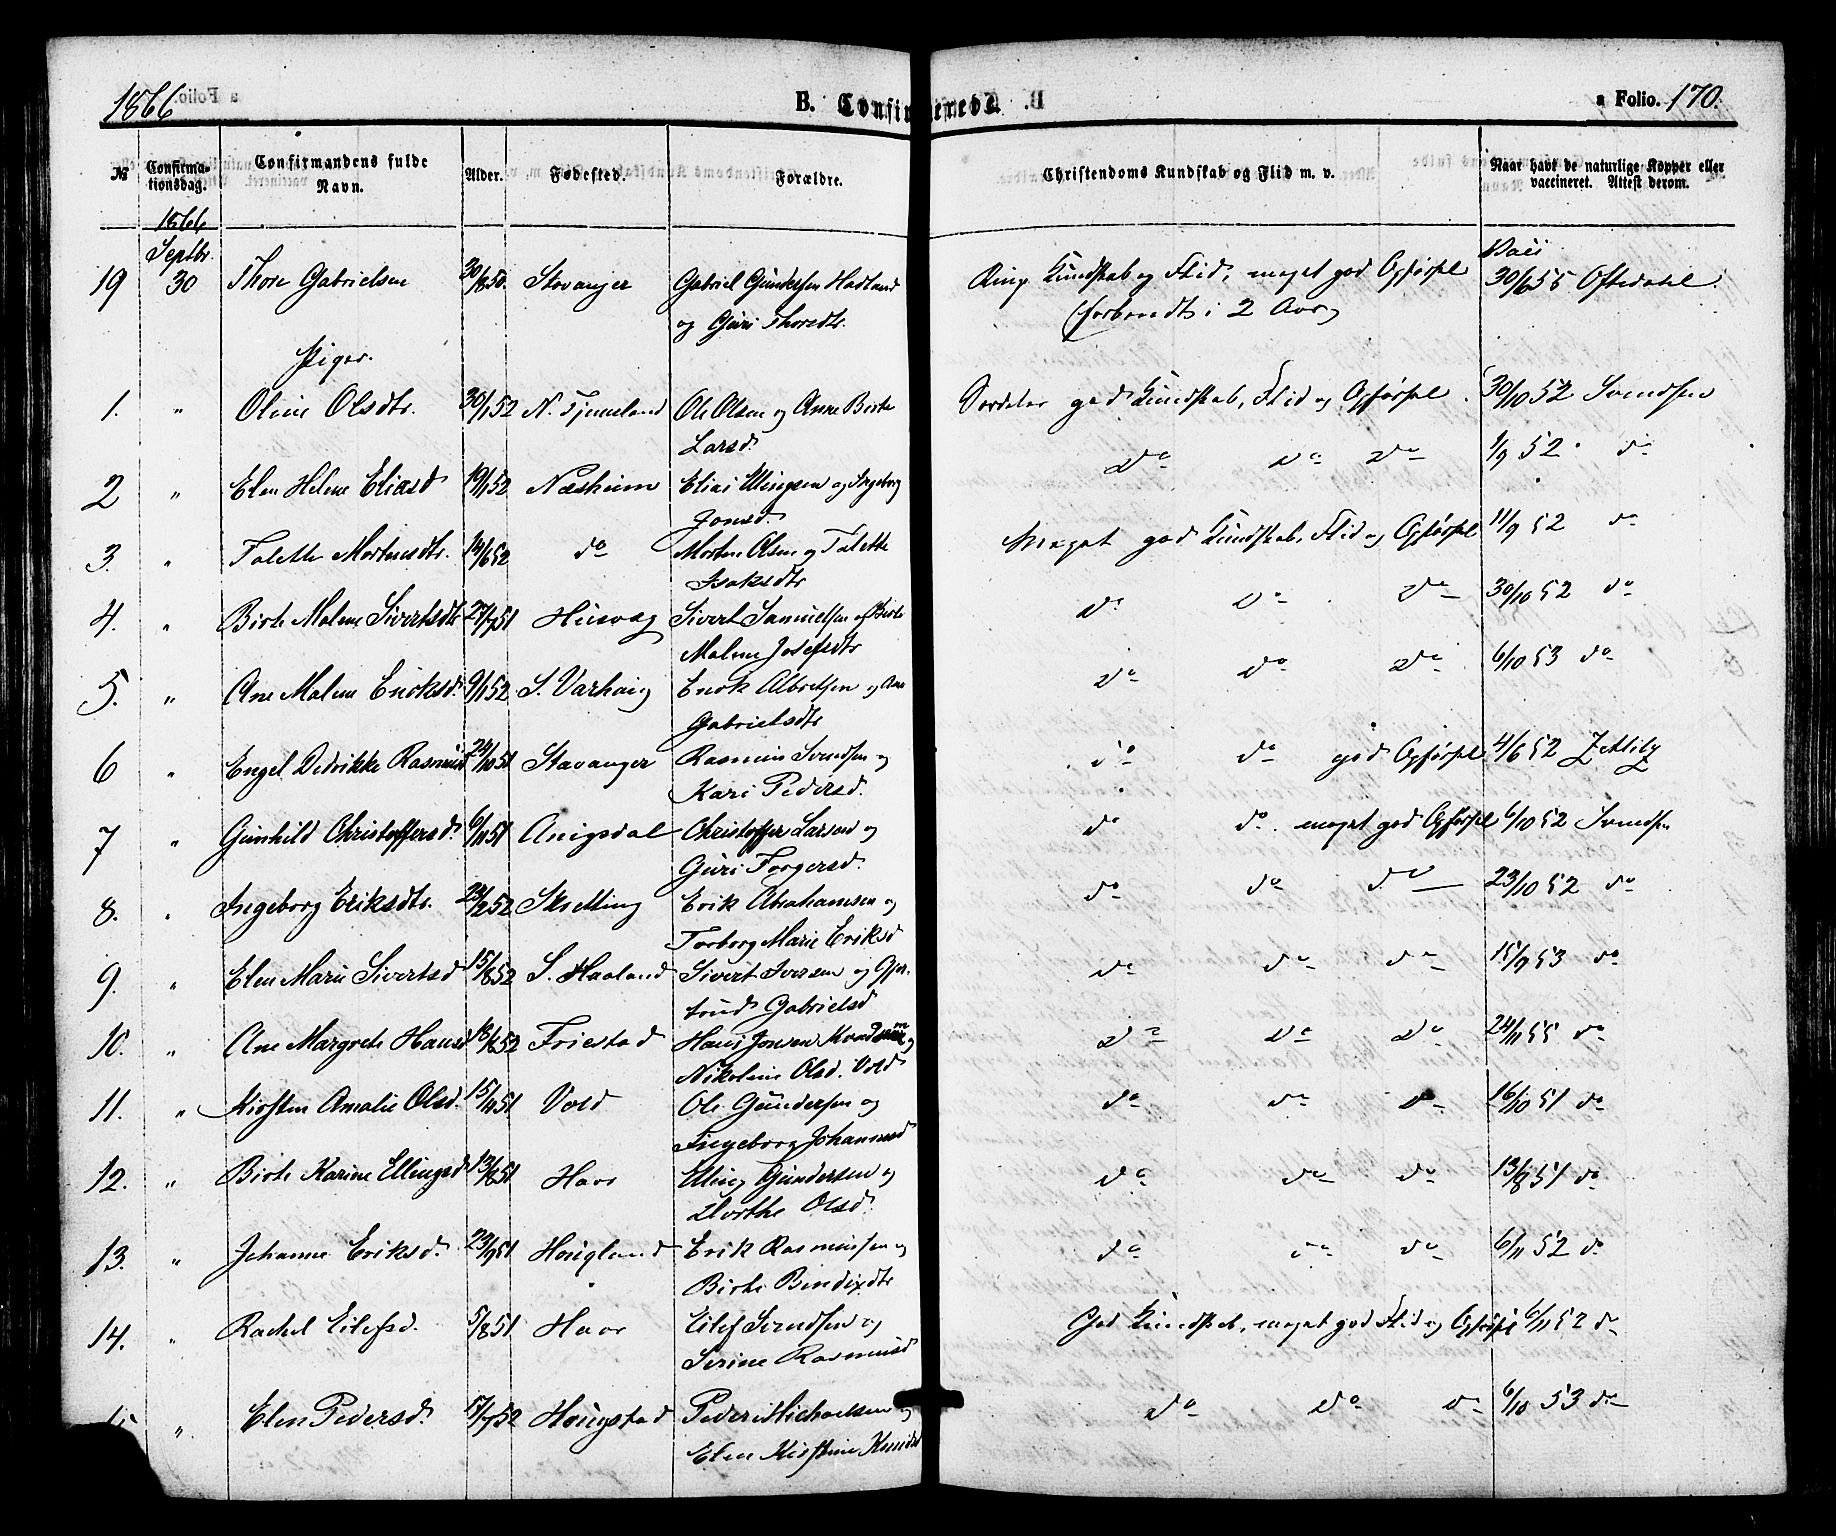 1866 B. Confirmerede. a Folio. 170.
№ Confirmationsdag. Confirmandens fulde Navn. Alder. Fødested. Forældre. Christendoms Kundskab og Flid m. v. Naar havt de naturlige Kopper eller vaccineret. Attest derom.
1866
Septbr.
19 30 Thore Gabrielsen 30/8 50. Stavanger Gabriel Gundersen Hadland 30/6 55 Oftedahl.
og Guri Thoredtr. (forberedt i 2 Aar)
Piger.
1. " Oline Olsdtr. 30/1 52 N. Tjemeland Ole Olsen og Anne Birte Særdeles god Kundskab, Flid og Opførsel. 30/10 52 Svendsen
Larsd.
2 " Elen Helene Eliasd 19/1 52 Næsheim Elias Ellingsen og Ingeborg do do do 1/9 52. do
Jonsd.
3. " Talette Mortensdtr. 14/6 52 do Morten Olsen og Talette Meget god Kundskab, Flid og Opførsel 11/9 52 do
Isaksdtr
4. " Birte Malene Sivertsdtr 27/7 51 Husvæg Sivert Samuelsen og Birte do do do 30/10 52 do
Malene Josefsdtr
5. " Ane Malene Enoksd. 9/1 52 S. Varhaug Enok Albretsen og Ane do do do 6/10 53 do
Gabrielsdtr
6 " Engel Didrikke Rasmusd 24/10 51 Stavanger Rasmus Svendsen og do do god Opførsel 4/6 52 Zetlitz
Kari Pedersd.
7 " Gunhild Christoffersd. 6/11 51 Anigsdal Christoffer Larsen og do do meget god Opførsel 6/10 52 Svendsen
Guri Torgersd.
8. " Ingeborg Eriksdtr. 24/2 52 Skretting Erik Abrahamsen og do do do 23/10 52 do
Torborg Marie Eriksd
9. " Elen Marie Sivertsd 15/8 52 S. Haaland Sivert Iversen og Gjer- do do do 15/9 53 do
trud Gabrielsd
10. " Ane Margrete Hansd 18/6 52 Friestad Hans Jonsen og do do do 24/11 55 do
Nikoline Olsd. Vold
11. " Kirsten Amalie Olsd. 15/10 51 Vold Ole Gundersen og do do do 16/10 51 do
Ingeborg Johannesd
12. " Birte Karine Ellingsd 13/8 51 Haar Elling Gundersen og do do do 13/8 51 do
Dorthe Olsd.
13. " Johanne Eriksd. 23/9 51 Hougland Erik Rasmussen og do do do 6/11 52 do
Birte Bendixdtr
14. " Rachel Eilefsd. 5/8 51 Haar Eilef Svendsen og God Kundskab, meget god Flid og Opførsel 6/11 52 do
Serine Rasmusd
" Elen Pedersd. 17/7 52 Hougstad Peder Michaelsen og do do do 6/10 53 do
Elen Kirstine Knudsd